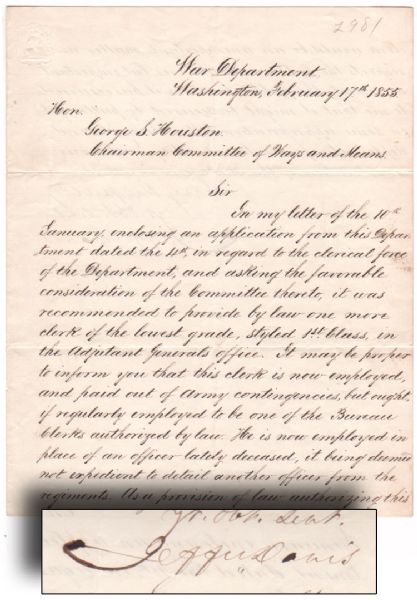 2981
War Department.
Washington, February 17th 1855
Hon.
George S. Houston.
Chairman Committee of Ways and Means.
Sir
In my letter of the 10th
January, enclosing an application from this Depart-
ment dated the 4th, in regard to the clerical force
of the Department, and asking the favorable
consideration of the Committee thereto, it was
recommended to provide by law one more
clerk of the lowest grade, styled 1st Class, in
the Adjutant General's office. It may be proper
to inform you that this clerk is now employed,
and paid out of Army contingencies, but ought,
if regularly employed to be one of the Bureau
Clerks authorized by law. He is now employed in
place of an officer lately deceased, it being deemed
not expedient to detail another officer from the
regiments. As a provision of law authorizing this
Yr. Obt. Servt.
Jeffn Davis